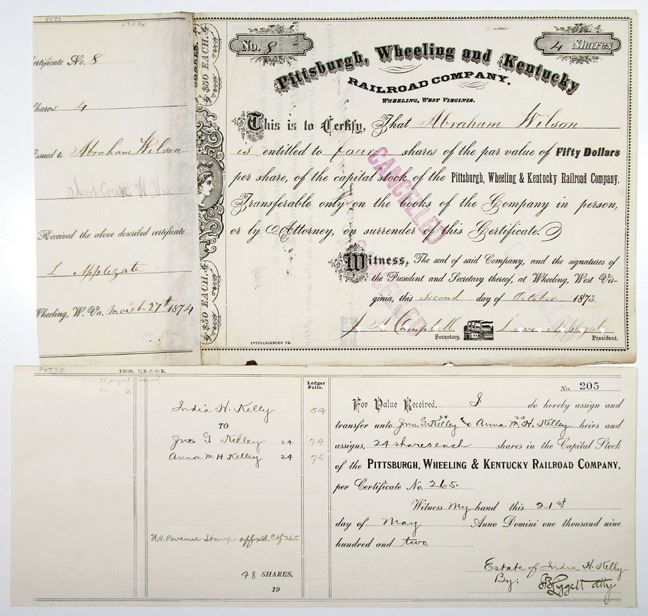 Certificate No. 8
Shares 4
Issued to Abraham Wilson
Received the above described certificate
L Applegate
Wheeling, W. Va. March 27th 1874
$50 EACH.
$50 EACH.
No. 8
4 Shares
Pittsburgh, Wheeling and Kentucky
RAILROAD COMPANY.
WHEELING, WEST VIRGINIA.
This is to Certify, That Abraham Wilson
is entitled to four shares of the par value of Fifty Dollars
per share, of the capital stock of the Pittsburgh, Wheeling & Kentucky Railroad Company.
Transferable only on the books of the Company in person,
or by Attorney, on surrender of this Certificate.
CANCELLED
Witness, The seal of said Company, and the signatures of
the President and Secretary thereof, at Wheeling, West Vir-
ginia, this second day of October 1873.
Campbell
Secretary.
President.
INTELLIGENCER PR.
Ledger
Folio.
India H. Kelly 54
TO
Jno G Kelley 24 74
Anna M H Kelley 24 75
U.S. Revenue Stamps
48 SHARES.
19
No. 205
For Value Received, I do hereby assign and
transfer unto Jno. G. Kelley & Anna M. H. Kelley heirs and
assigns, 24 shares each shares in the Capital Stock
of the PITTSBURGH, WHEELING & KENTUCKY RAILROAD COMPANY,
per Certificate No. 265.
Witness My hand this 21st
day of May Anno Domini one thousand nine
hundred and two
Estate of India H. Kelly
By. Liggett atty